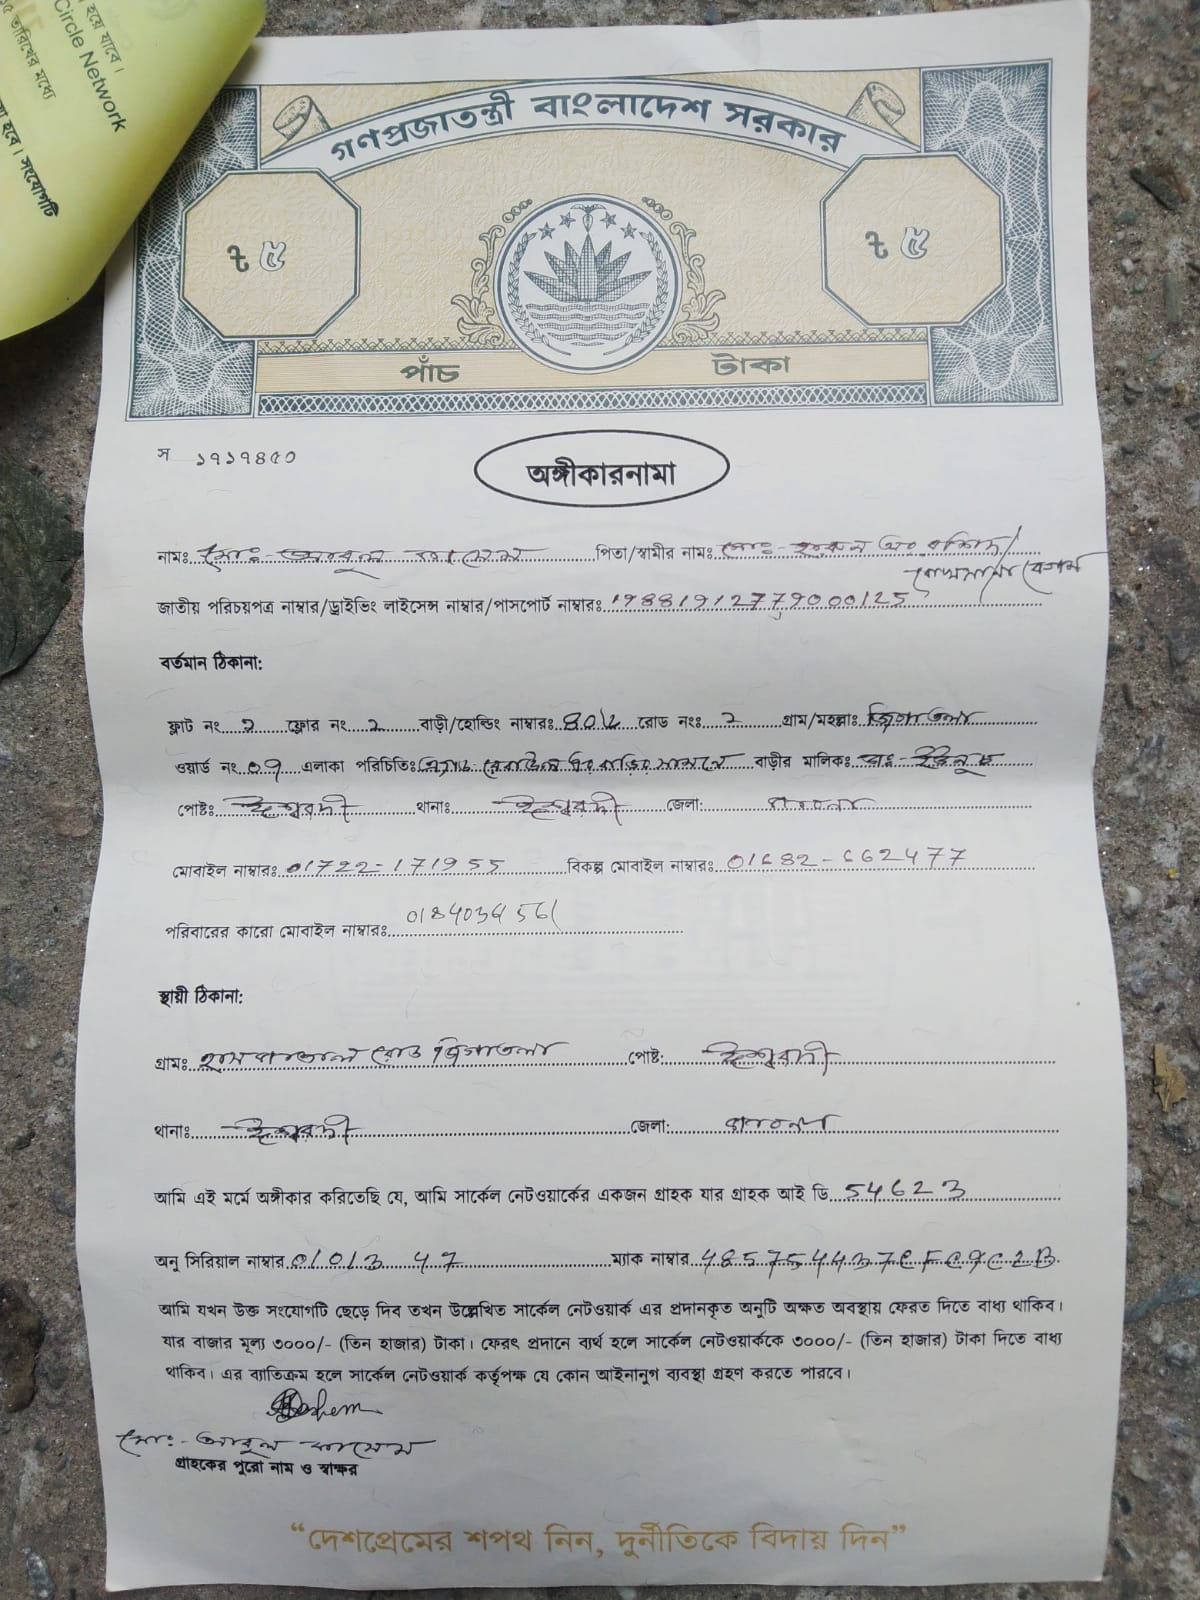 হয়ে যাবে।
Circle Network
তারিখের মধ্যে
হবে। সংযোগটি
গণপ্রজাতন্ত্রী বাংলাদেশ সরকার
৳ ৫ ৳ ৫
পাঁচ টাকা
স ১৭১৭৪৫০
অঙ্গীকারনামা
নামঃ মোঃ- আবুল কাসেম পিতা/স্বামীর নামঃ মোঃ- হারুন অর রশিদ/
বেগম
জাতীয় পরিচয়পত্র নাম্বার/ড্রাইভিং লাইসেন্স নাম্বার/পাসপোর্ট নাম্বারঃ 19881912779000125
বর্তমান ঠিকানা:
ফ্লাট নং ২ ফ্লোর নং ২ বাড়ী/হোল্ডিং নাম্বারঃ রোড নংঃ ২ গ্রাম/মহল্লাঃ জিগাতলা
ওয়ার্ড নং ০৭ এলাকা পরিচিতিঃ বাড়ির সামনে বাড়ীর মালিকঃ
পোষ্টঃ ঈশ্বরদী থানাঃ ঈশ্বরদী জেলা: পাবনা
মোবাইল নাম্বারঃ 01722-171955 বিকল্প মোবাইল নাম্বারঃ 01682-662477
পরিবারের কারো মোবাইল নাম্বারঃ
স্থায়ী ঠিকানা:
গ্রামঃ হাসপাতাল রোড জিগাতলা পোষ্ট: ঈশ্বরদী
থানাঃ ঈশ্বরদী জেলা: পাবনা
আমি এই মর্মে অঙ্গীকার করিতেছি যে, আমি সার্কেল নেটওয়ার্কের একজন গ্রাহক যার গ্রাহক আই ডি 54623
অনু সিরিয়াল নাম্বার 01013 47 ম্যাক নাম্বার
আমি যখন উক্ত সংযোগটি ছেড়ে দিব তখন উল্লেখিত সার্কেল নেটওয়ার্ক এর প্রদানকৃত অনুটি অক্ষত অবস্থায় ফেরত দিতে বাধ্য থাকিব।
যার বাজার মূল্য ৩০০০/- (তিন হাজার) টাকা। ফেরৎ প্রদানে ব্যর্থ হলে সার্কেল নেটওয়ার্ককে ৩০০০/- (তিন হাজার) টাকা দিতে বাধ্য
থাকিব। এর ব্যতিক্রম হলে সার্কেল নেটওয়ার্ক কর্তৃপক্ষ যে কোন আইনানুগ ব্যবস্থা গ্রহণ করতে পারবে।
মোঃ- আবুল কাসেম
গ্রাহকের পুরো নাম ও স্বাক্ষর
“দেশপ্রেমের শপথ নিন, দুর্নীতিকে বিদায় দিন”